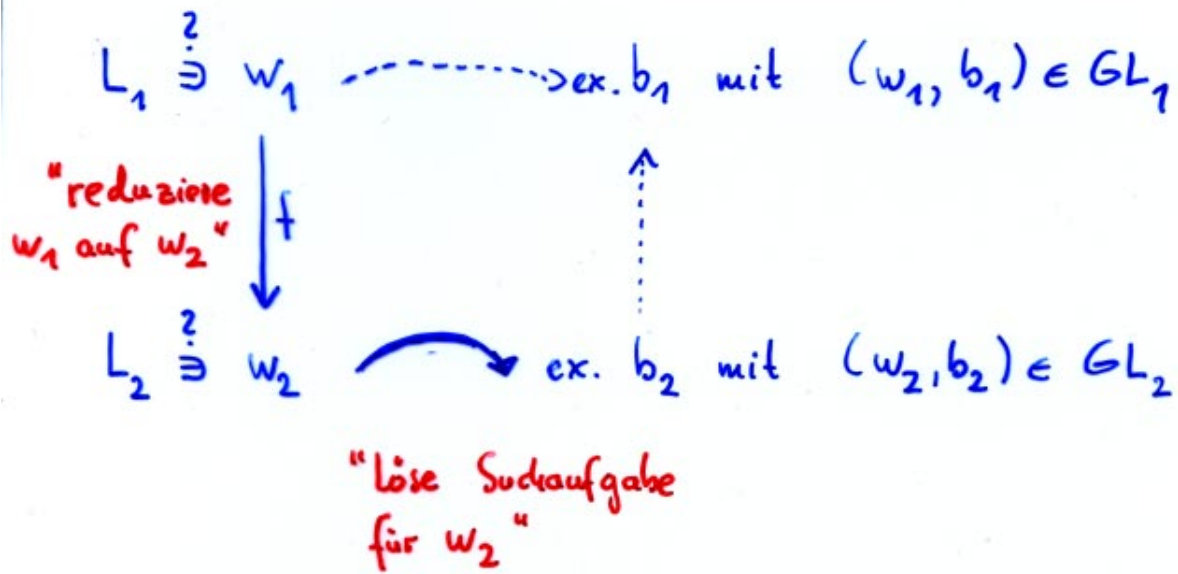 L₁ ∋? w₁ ex. b₁ mit (w₁, b₁) ∈ GL₁
"reduziere
w₁ auf w₂"
f
L₂ ∋? w₂ ex. b₂ mit (w₂, b₂) ∈ GL₂
"Löse Suchaufgabe
für w₂"